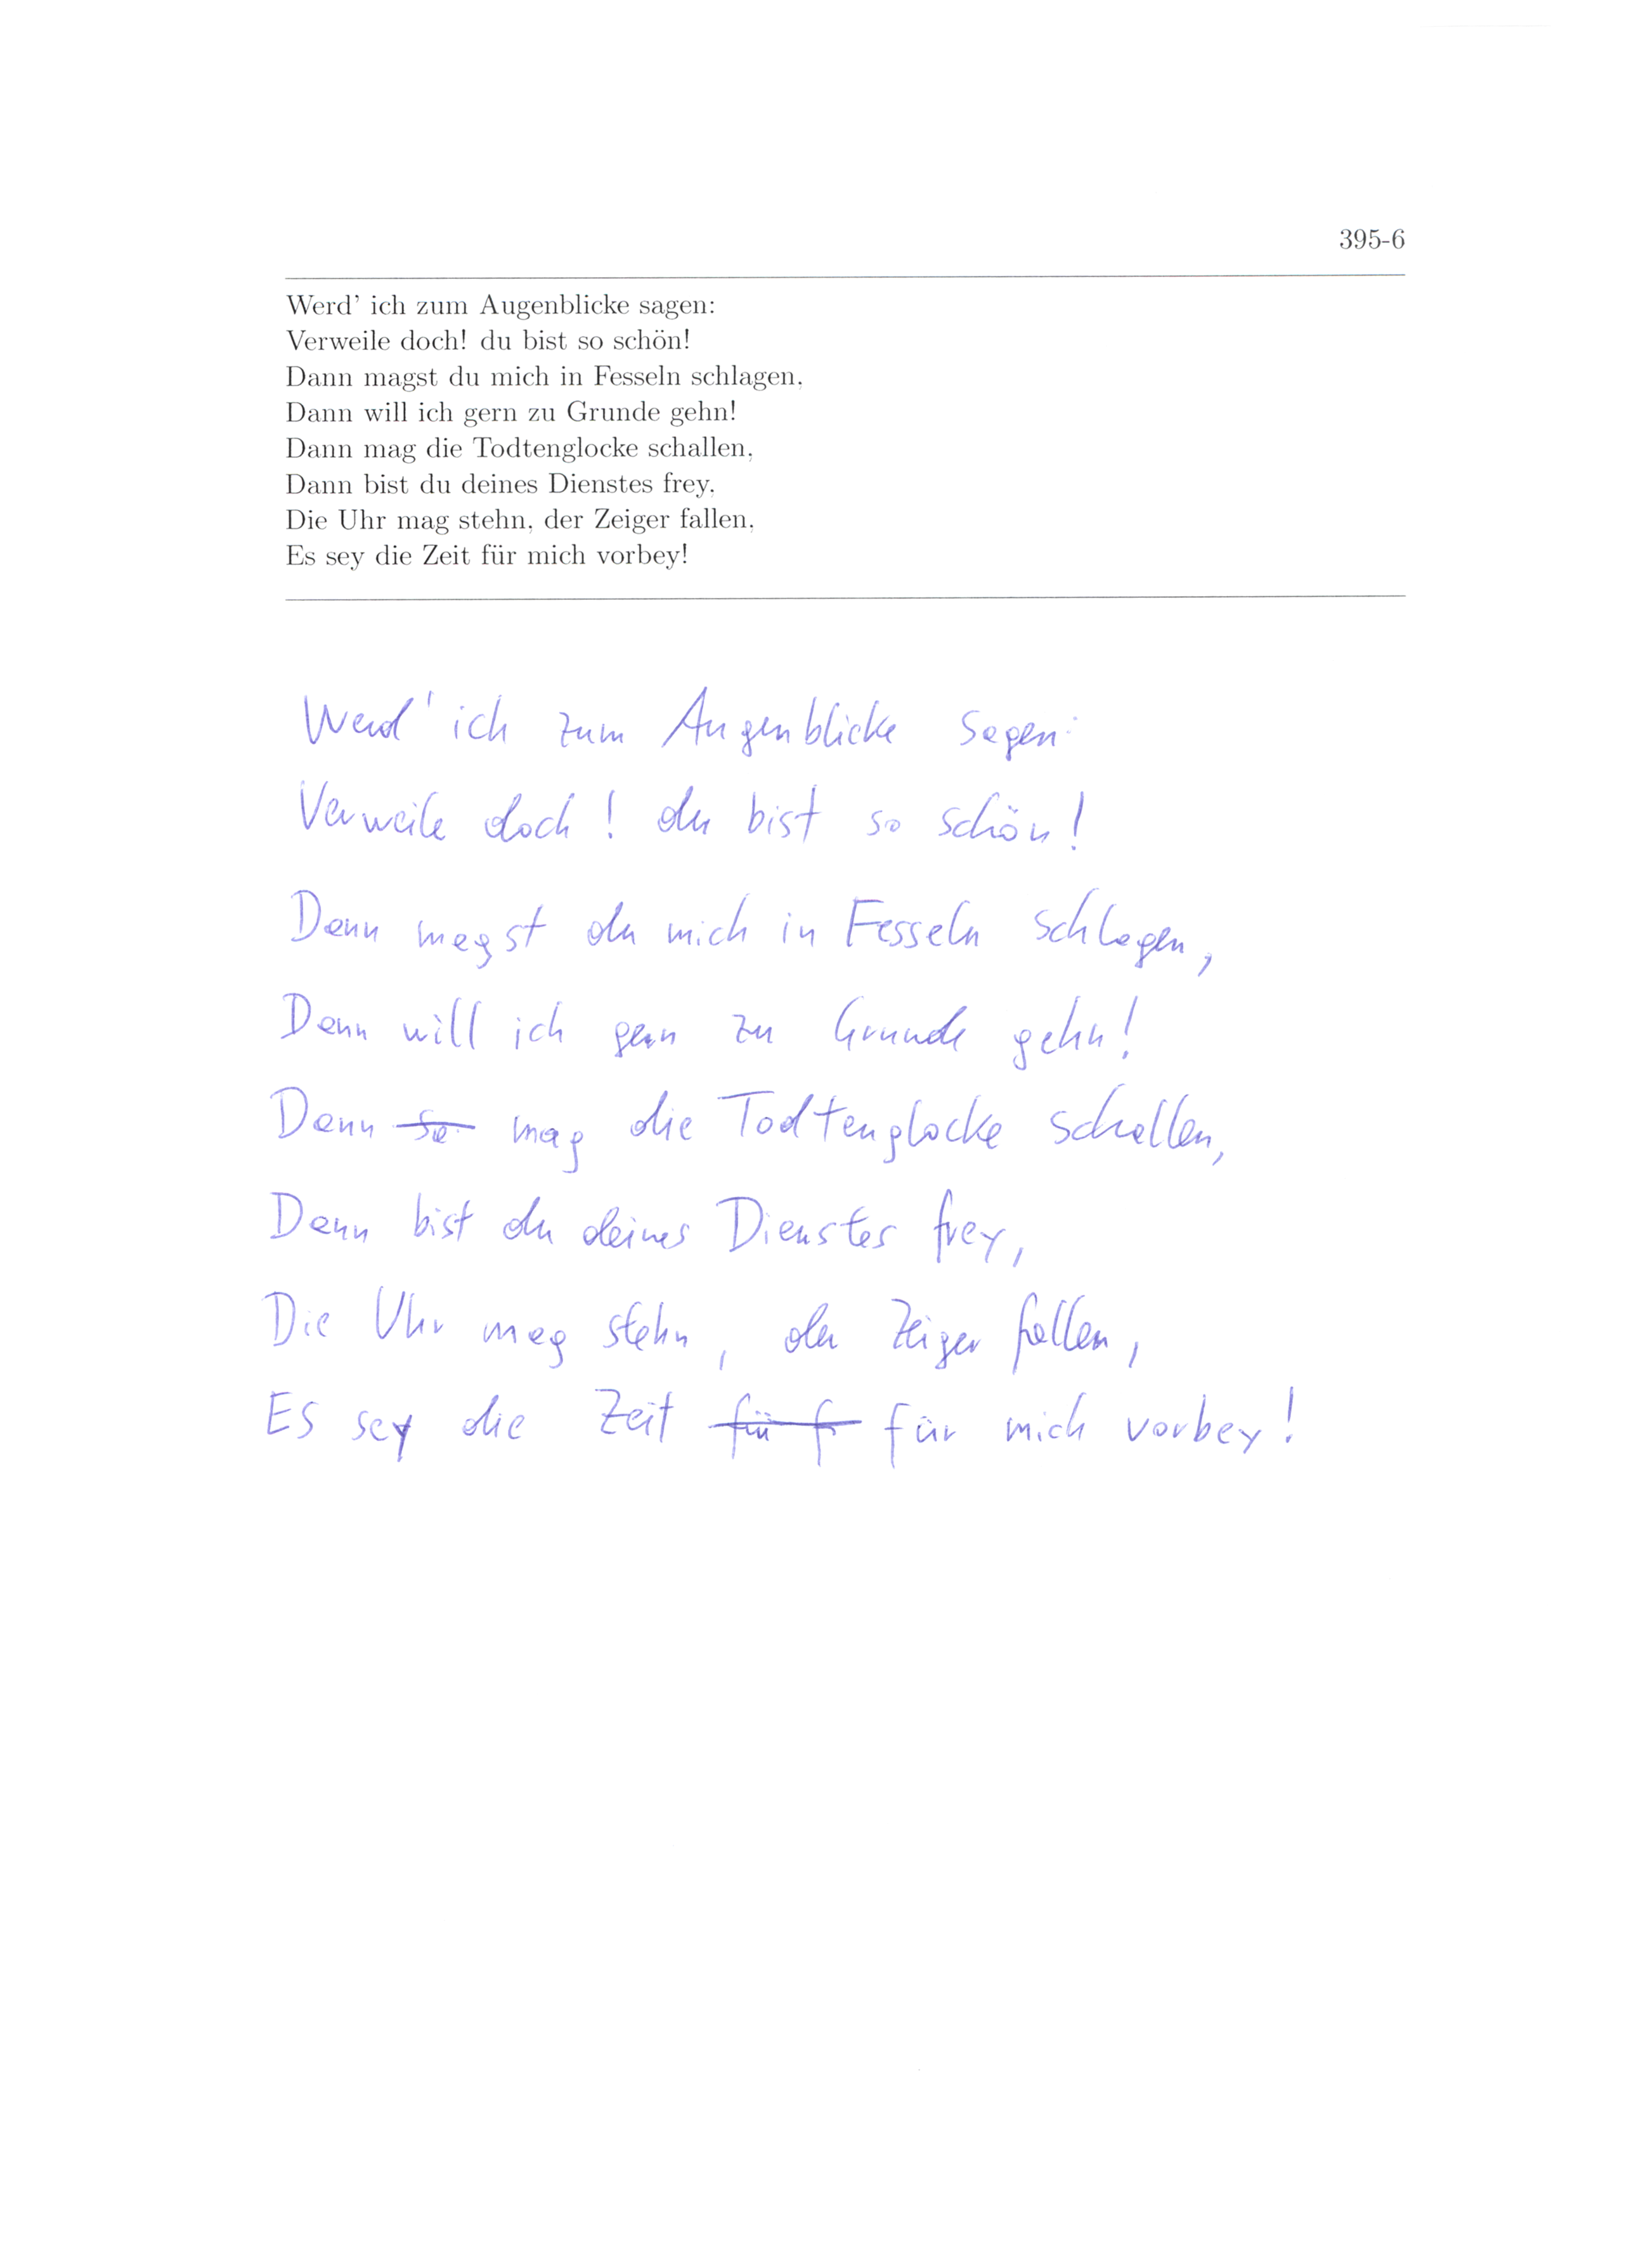 395-6
Werd' ich zum Augenblicke sagen:
Verweile doch! du bist so schön!
Dann magst du mich in Fesseln schlagen,
Dann will ich gern zu Grunde gehn!
Dann mag die Todtenglocke schallen,
Dann bist du deines Dienstes frey,
Die Uhr mag stehn, der Zeiger fallen,
Es sey die Zeit für mich vorbey!
Werd' ich zum Augenblicke sagen:
Verweile doch! du bist so schön!
Dann magst du mich in Fesseln schlagen,
Dann will ich gern zu Grunde gehn!
Dann mag die Todtenglocke schallen,
Dann bist du deines Dienstes frey,
Die Uhr mag stehn, der Zeiger fallen,
Es sey die Zeit für mich vorbey!